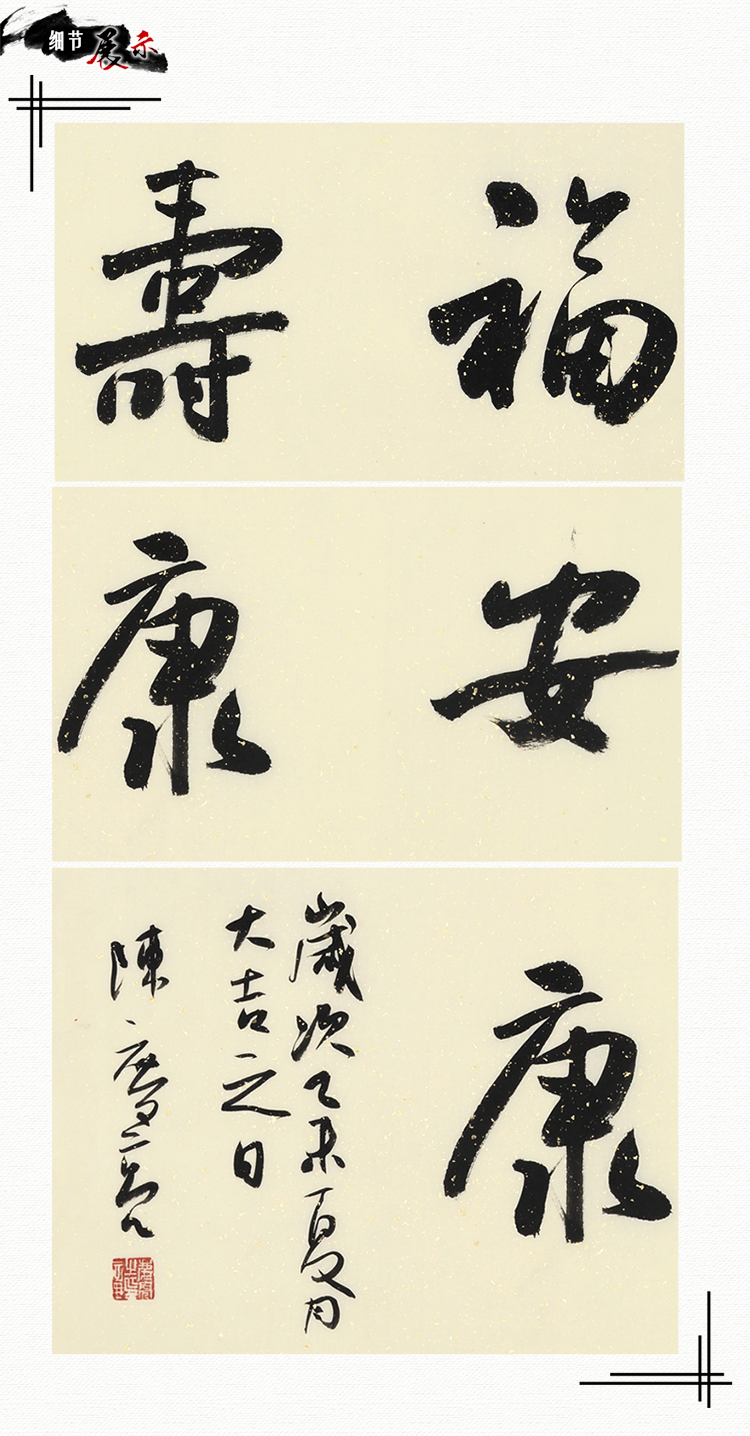 细节展示
福壽
安康
康
歲次乙未夏月
大吉之日
陳